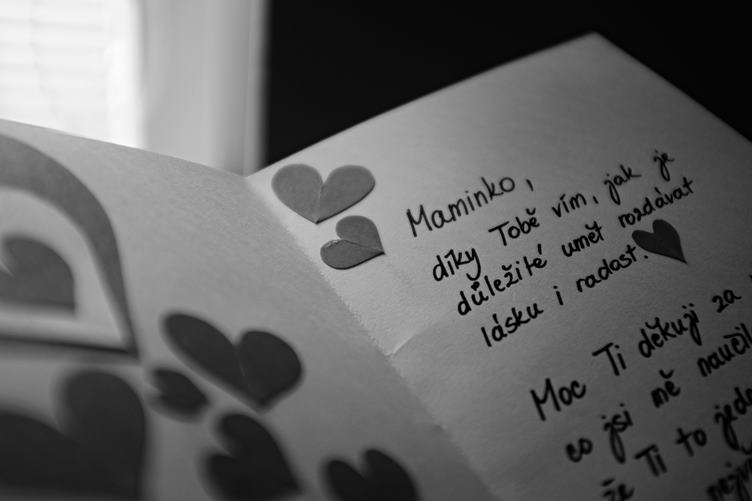 Maminko,
díky Tobě vím, jak je
důležité umět rozdávat
lásku i radost.
Moc Ti děkuji za
co jsi mě naučil
že Ti to